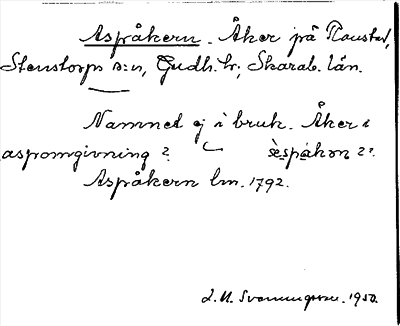 Aspråkern. Åker på Raustad,
Stenstorps s:n, Gudh. hr, Skarab. län.
Namnet ej i bruk. Åker i
aspomgivning? sèspåkən??.
Aspråkern lm. 1792.
1950.